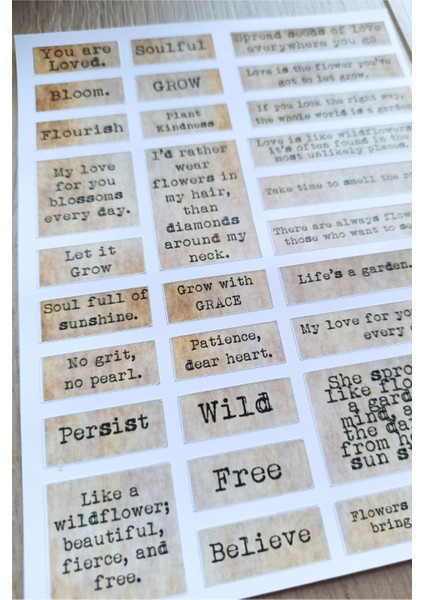 You are
Loved.
Bloom.
Flourish
My love
for you
blossoms
every day.
Let it
Grow
Soul full of
sunshine.
No grit,
no pearl.
Persist
Like a
wildflower;
beautiful,
fierce, and
free.
Soulful
GROW
Plant
Kindness
I'd rather
wear
flowers in
my hair,
than
diamonds
around my
neck.
Grow with
GRACE
Patience,
dear heart.
Wild
Free
Believe
Spread seeds of love
everywhere you go
Love is the flower you've
got to let grow.
if you look the right way,
the whole world is a garden
Love is like wildflowers
it's often found in the
most unlikely places.
Take time to smell the
There are always
those who want to
Life's a garden.
My love for
every
She
like
a
mind,
the
from
sun
Flowers
bring